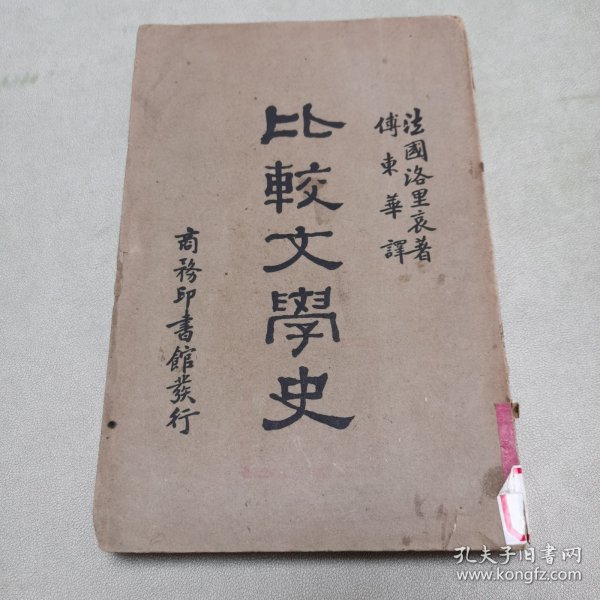 法國洛里哀著
傅東華譯
比較文學史
商務印書館發行
孔夫子旧書网
www.kongfz.com